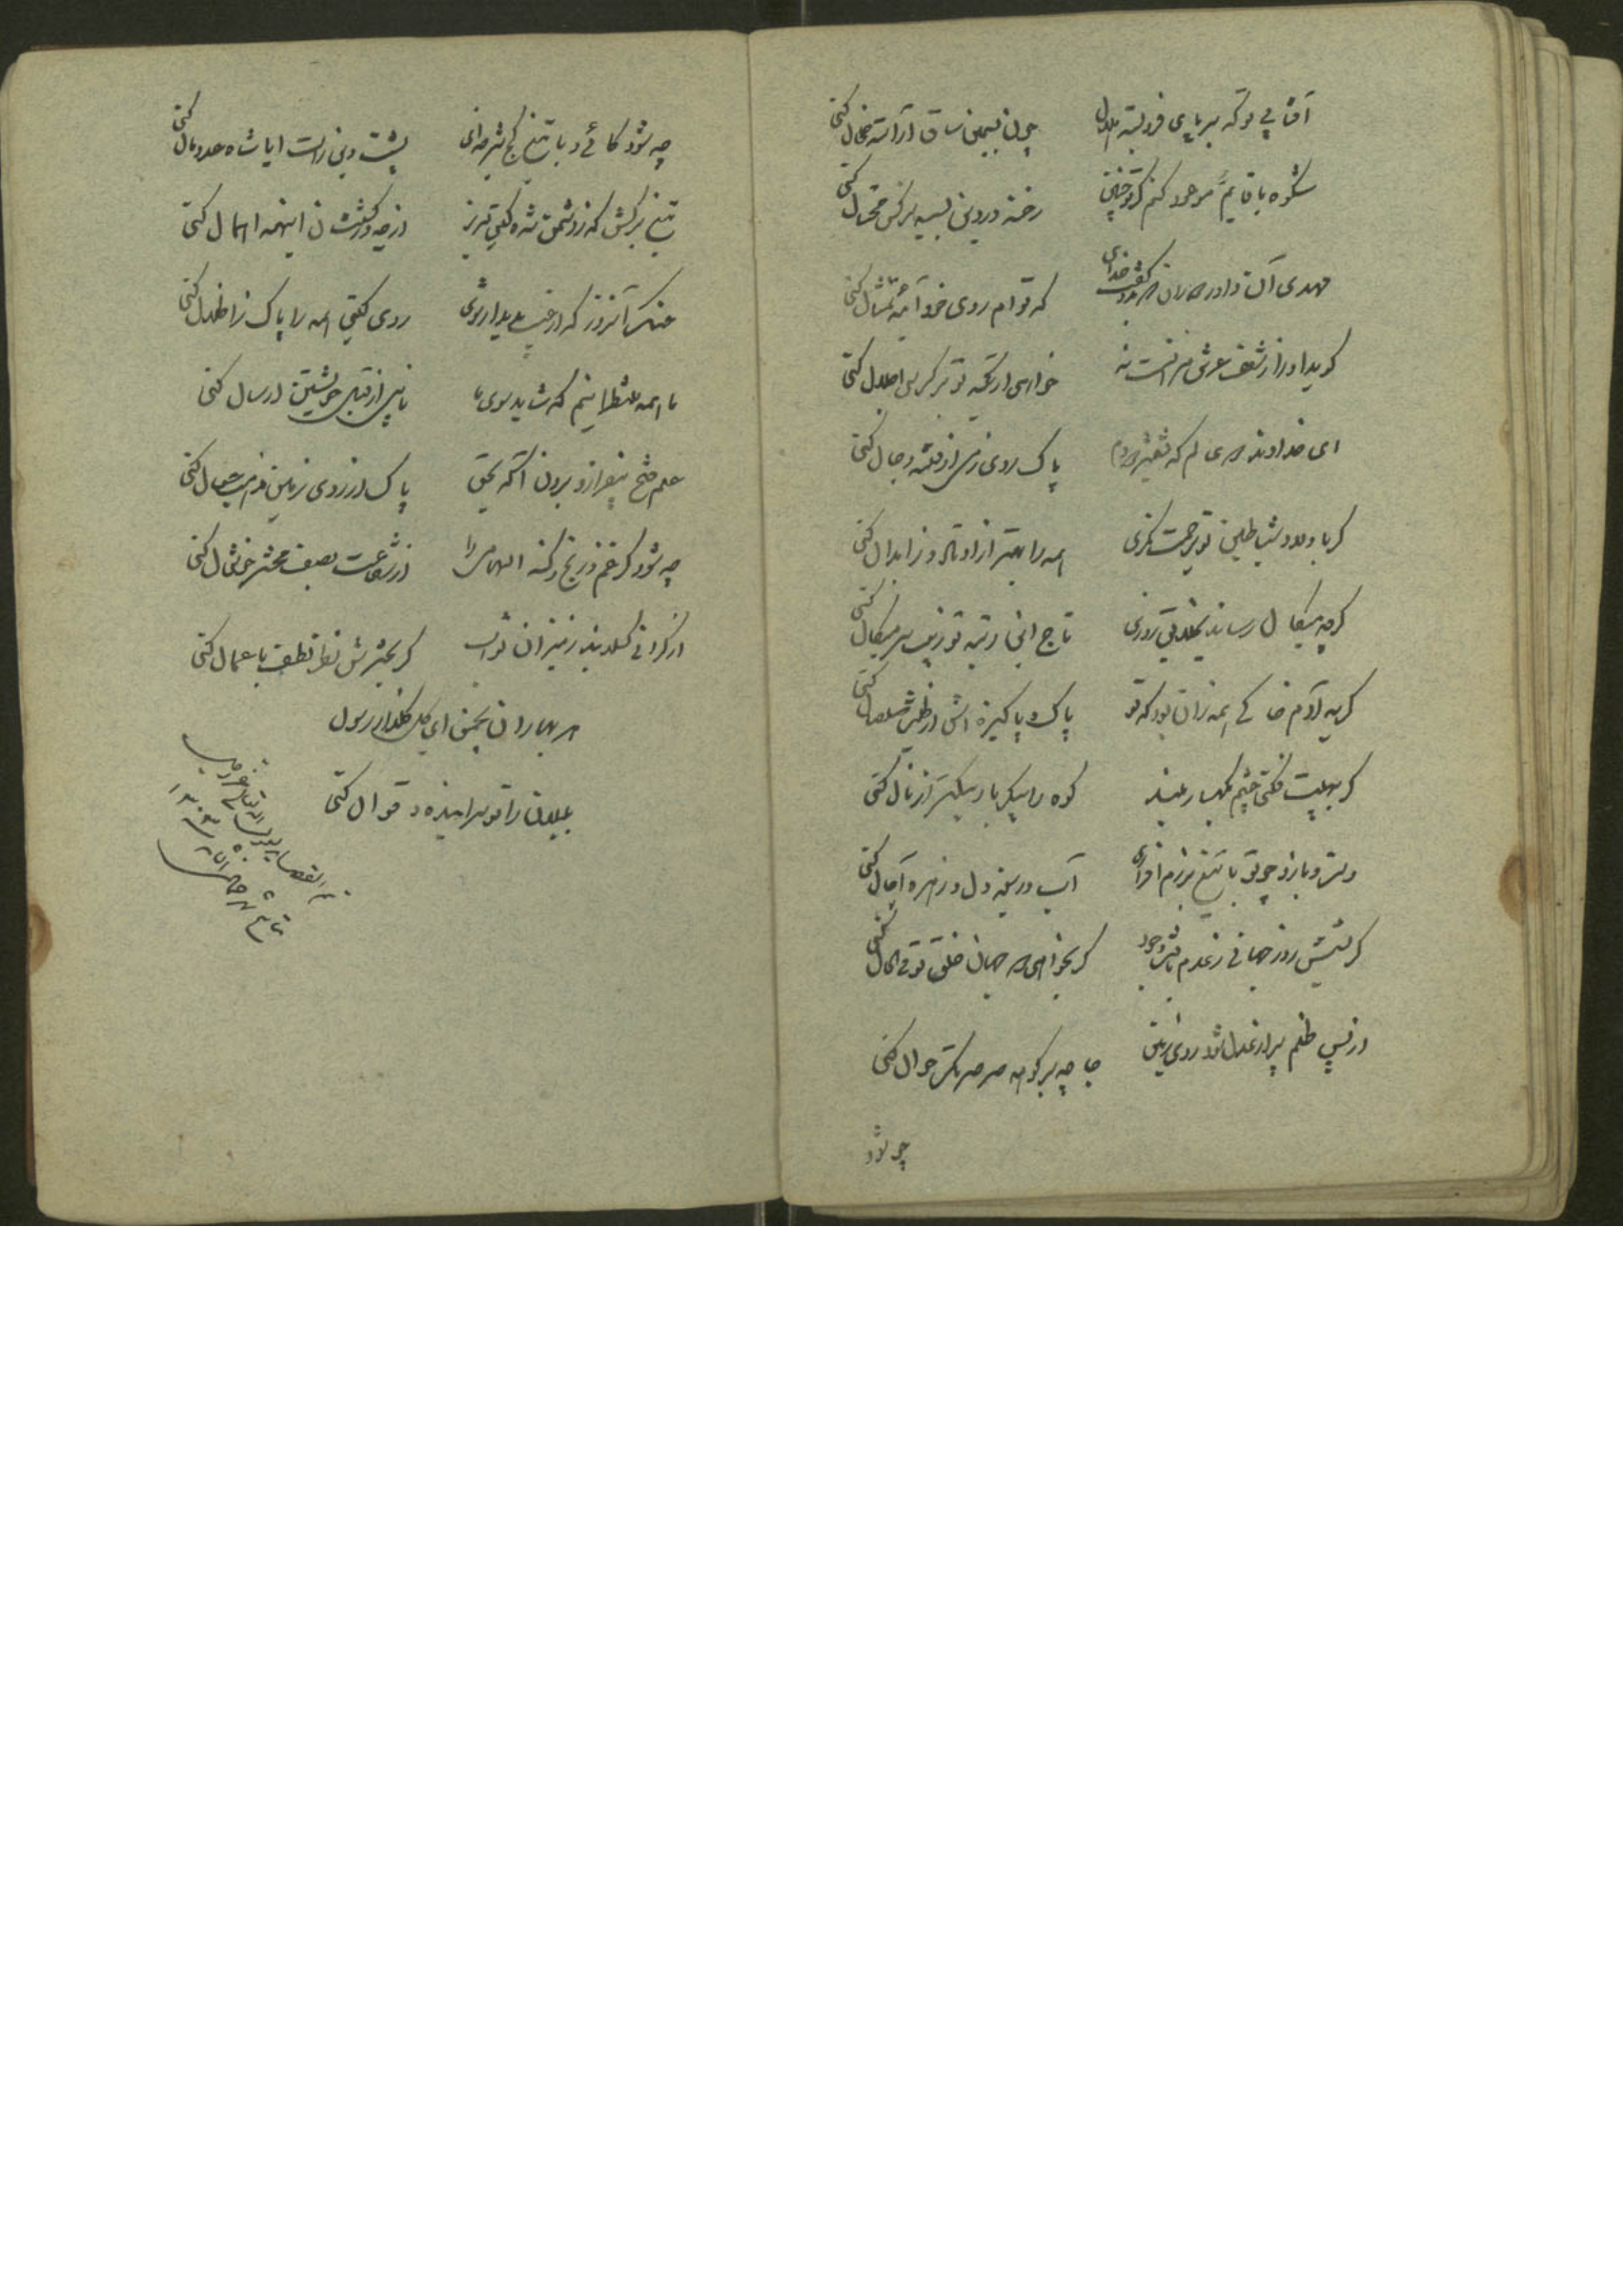 آفتابی تو که بر پای فرو بسته هلال چون بسیمین ساق آراسته خلخال کنی
شکوه با قایم موعود کنم گر تو چنین رخنه در دین بسیه نرگس محتال کنی
مهدی آن داور دوران که بدو گفت خدای که تو ام روی خود آئینه تمثال کنی
گوید او را ز شعف عرش من آنست نه خواهی ار تکیه تو بر کرسی اجلال کنی
ای خداوند که
پاک روی زمی از فتنه دجال کنی
گر باولاد شیاطین تو برحمت نگری همه را بهتر از اوتاد و ز ابدال کنی
گرچه میکال رساند بخلایق روزی تاج این رتبه تو زیب سر میکال کنی
گریه آدم خاکی همه زان بود که تو پاک و پاکیزه اش از طین صلصال کنی
گر بهیبت فکنی چشم بکهسار بلند کوه را پیکر باریکتر از نال کنی
دست و بازو چو تو با تیغ برزم افرازی آب در سینه دل و زهره آجال کنی
گر بشش روز جهانی ز عدم یافت وجود گر بخواهی دو جهان خلق تو فی الحال کنی
از پس ظلم پر از عدل شود روی زمین جا چو بر کوهه صرصر تک جوال کنی
چه شود
چه شود کائی و با تیغ کج شیر خدای پشت دین راست ایا شاه عدومال کنی
تیغ برکش که ز دشمن شده گیتی لبریز از چه در کشتنشان اینهمه اهمال کنی
خنک آنروز که از غیب پدیدار شوی روی گیتی همه را پاک ز اضلال کنی
ما همه منتظرانیم که شاید سوی ما نایبی از قبل خویشتن ارسال کنی
علم فتح بیفراز و برون آ که بحق پاک از روی زمین مذهب جهال کنی
چه شود گر غم و رنج و گنه الهامی را از شفاعت بصف محشر خوشحال کنی
از گرانی گسلد بند ز میزان ثواب گر بحشرش نظر لطف باعمال کنی
هر بهاران بچمن ای گل گلزار رسول
بلبلان را تو سراینده و قوال کنی
تم القصاید